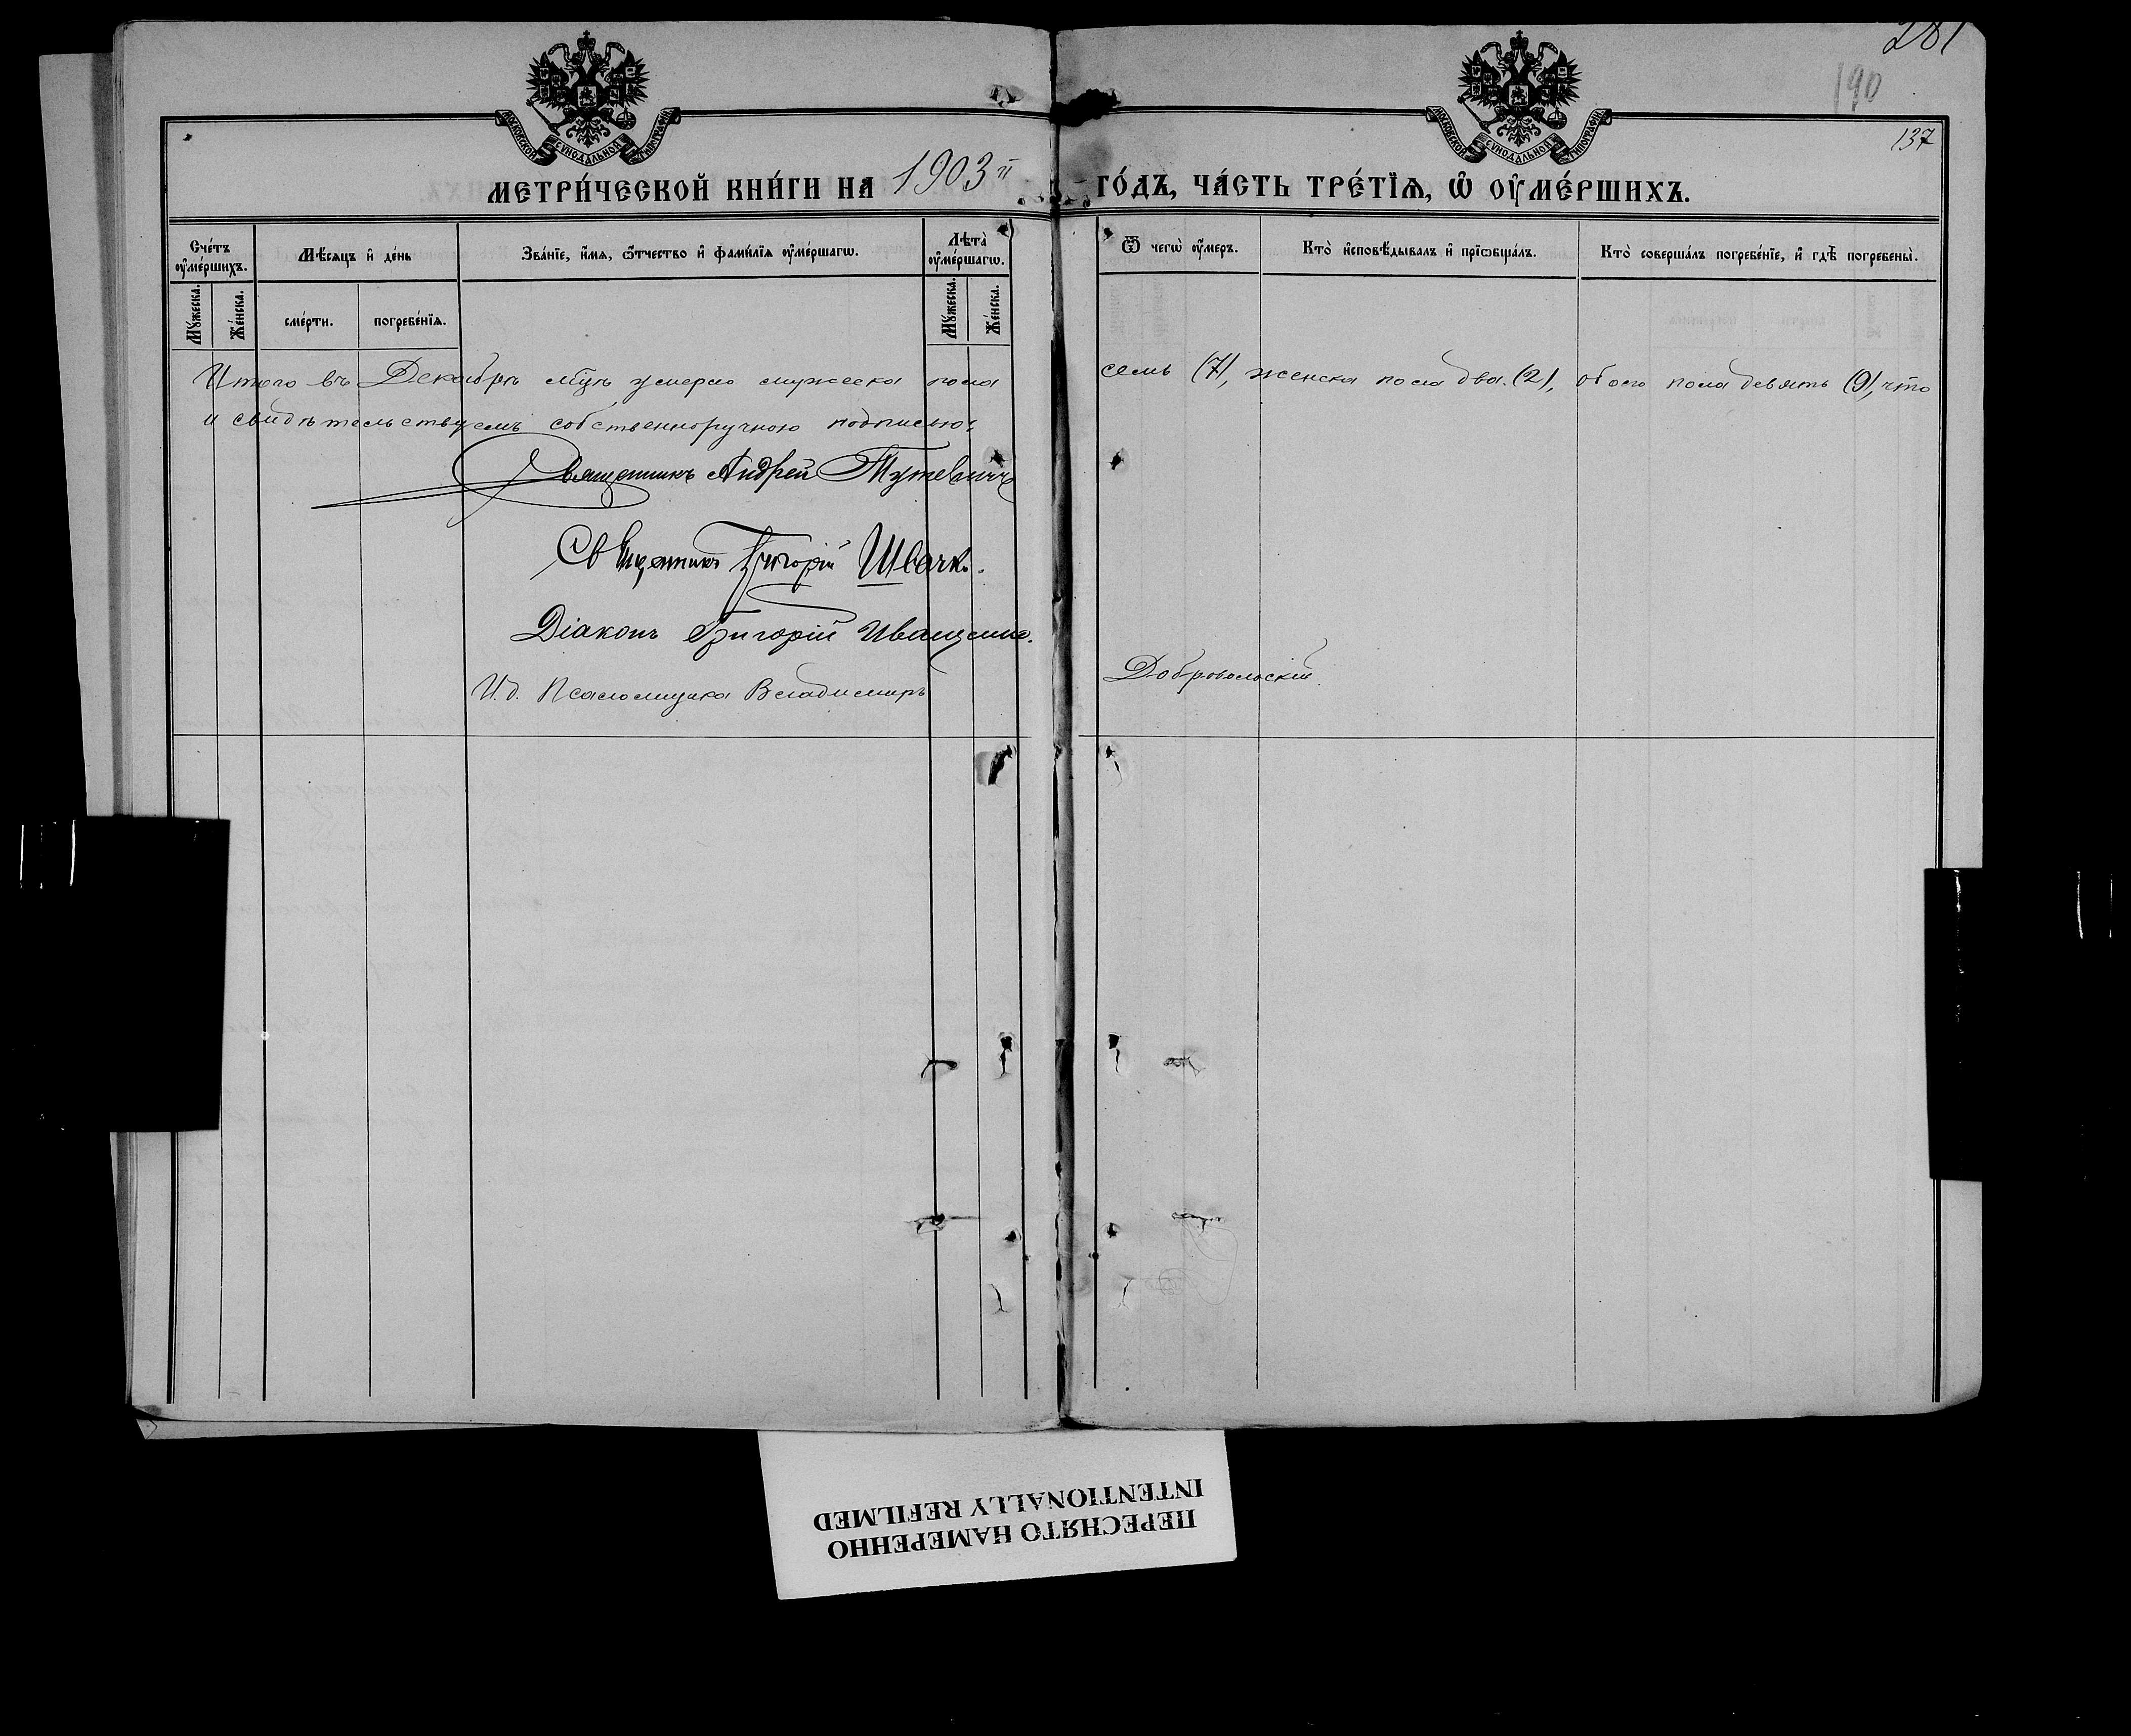 281
190
137
МОСКОВСКОЙ СѴНОДАЛЬНОЙ ТИПОГРАФІИ
МОСКОВСКОЙ СѴНОДАЛЬНОЙ ТИПОГРАФІИ
МЕТРИ́ЧЕСКОЙ КНИ́ГИ НА 1903й ГО́ДЪ, ЧА́СТЬ ТРЕ́ТЇѦ, Ѡ҆ ОУ҆МЕ́РШИХЪ.
Сче́тъ оу҆ме́ршихъ.
Мѣ́сяцъ и҆ де́нь
Зва́нїе, и҆́мя, ѻ҆́тчество и҆ фами́лїя оу҆ме́ршагѡ.
Лѣта̀ оу҆ме́ршагѡ.
Ѿ чегѡ̀ оу҆́меръ.
Кто̀ и҆сповѣ́дывалъ и҆ прїѡбща́лъ.
Кто̀ соверша́лъ погребе́нїе, и҆ гдѣ̀ погребены̀.
Мꙋ́жеска.
Же́нска.
сме́рти.
погребе́нїѧ.
Мꙋ́жеска.
Же́нска.
Итого въ Декабрѣ мцѣ умерло мужеска пола семь (7), женска пола два (2), обоего пола девять (9), что
и свидѣтельствуемъ собственноручною подписью:
Священникъ Андрей Тутевичъ
Священникъ Григорій Швачк.
Діаконъ Григорій Иващенко.
И. д. Псаломщика Владимиръ Добровольскій.
ПЕРЕСНЯТО НАМЕРЕННО
INTENTIONALLY REFILMED